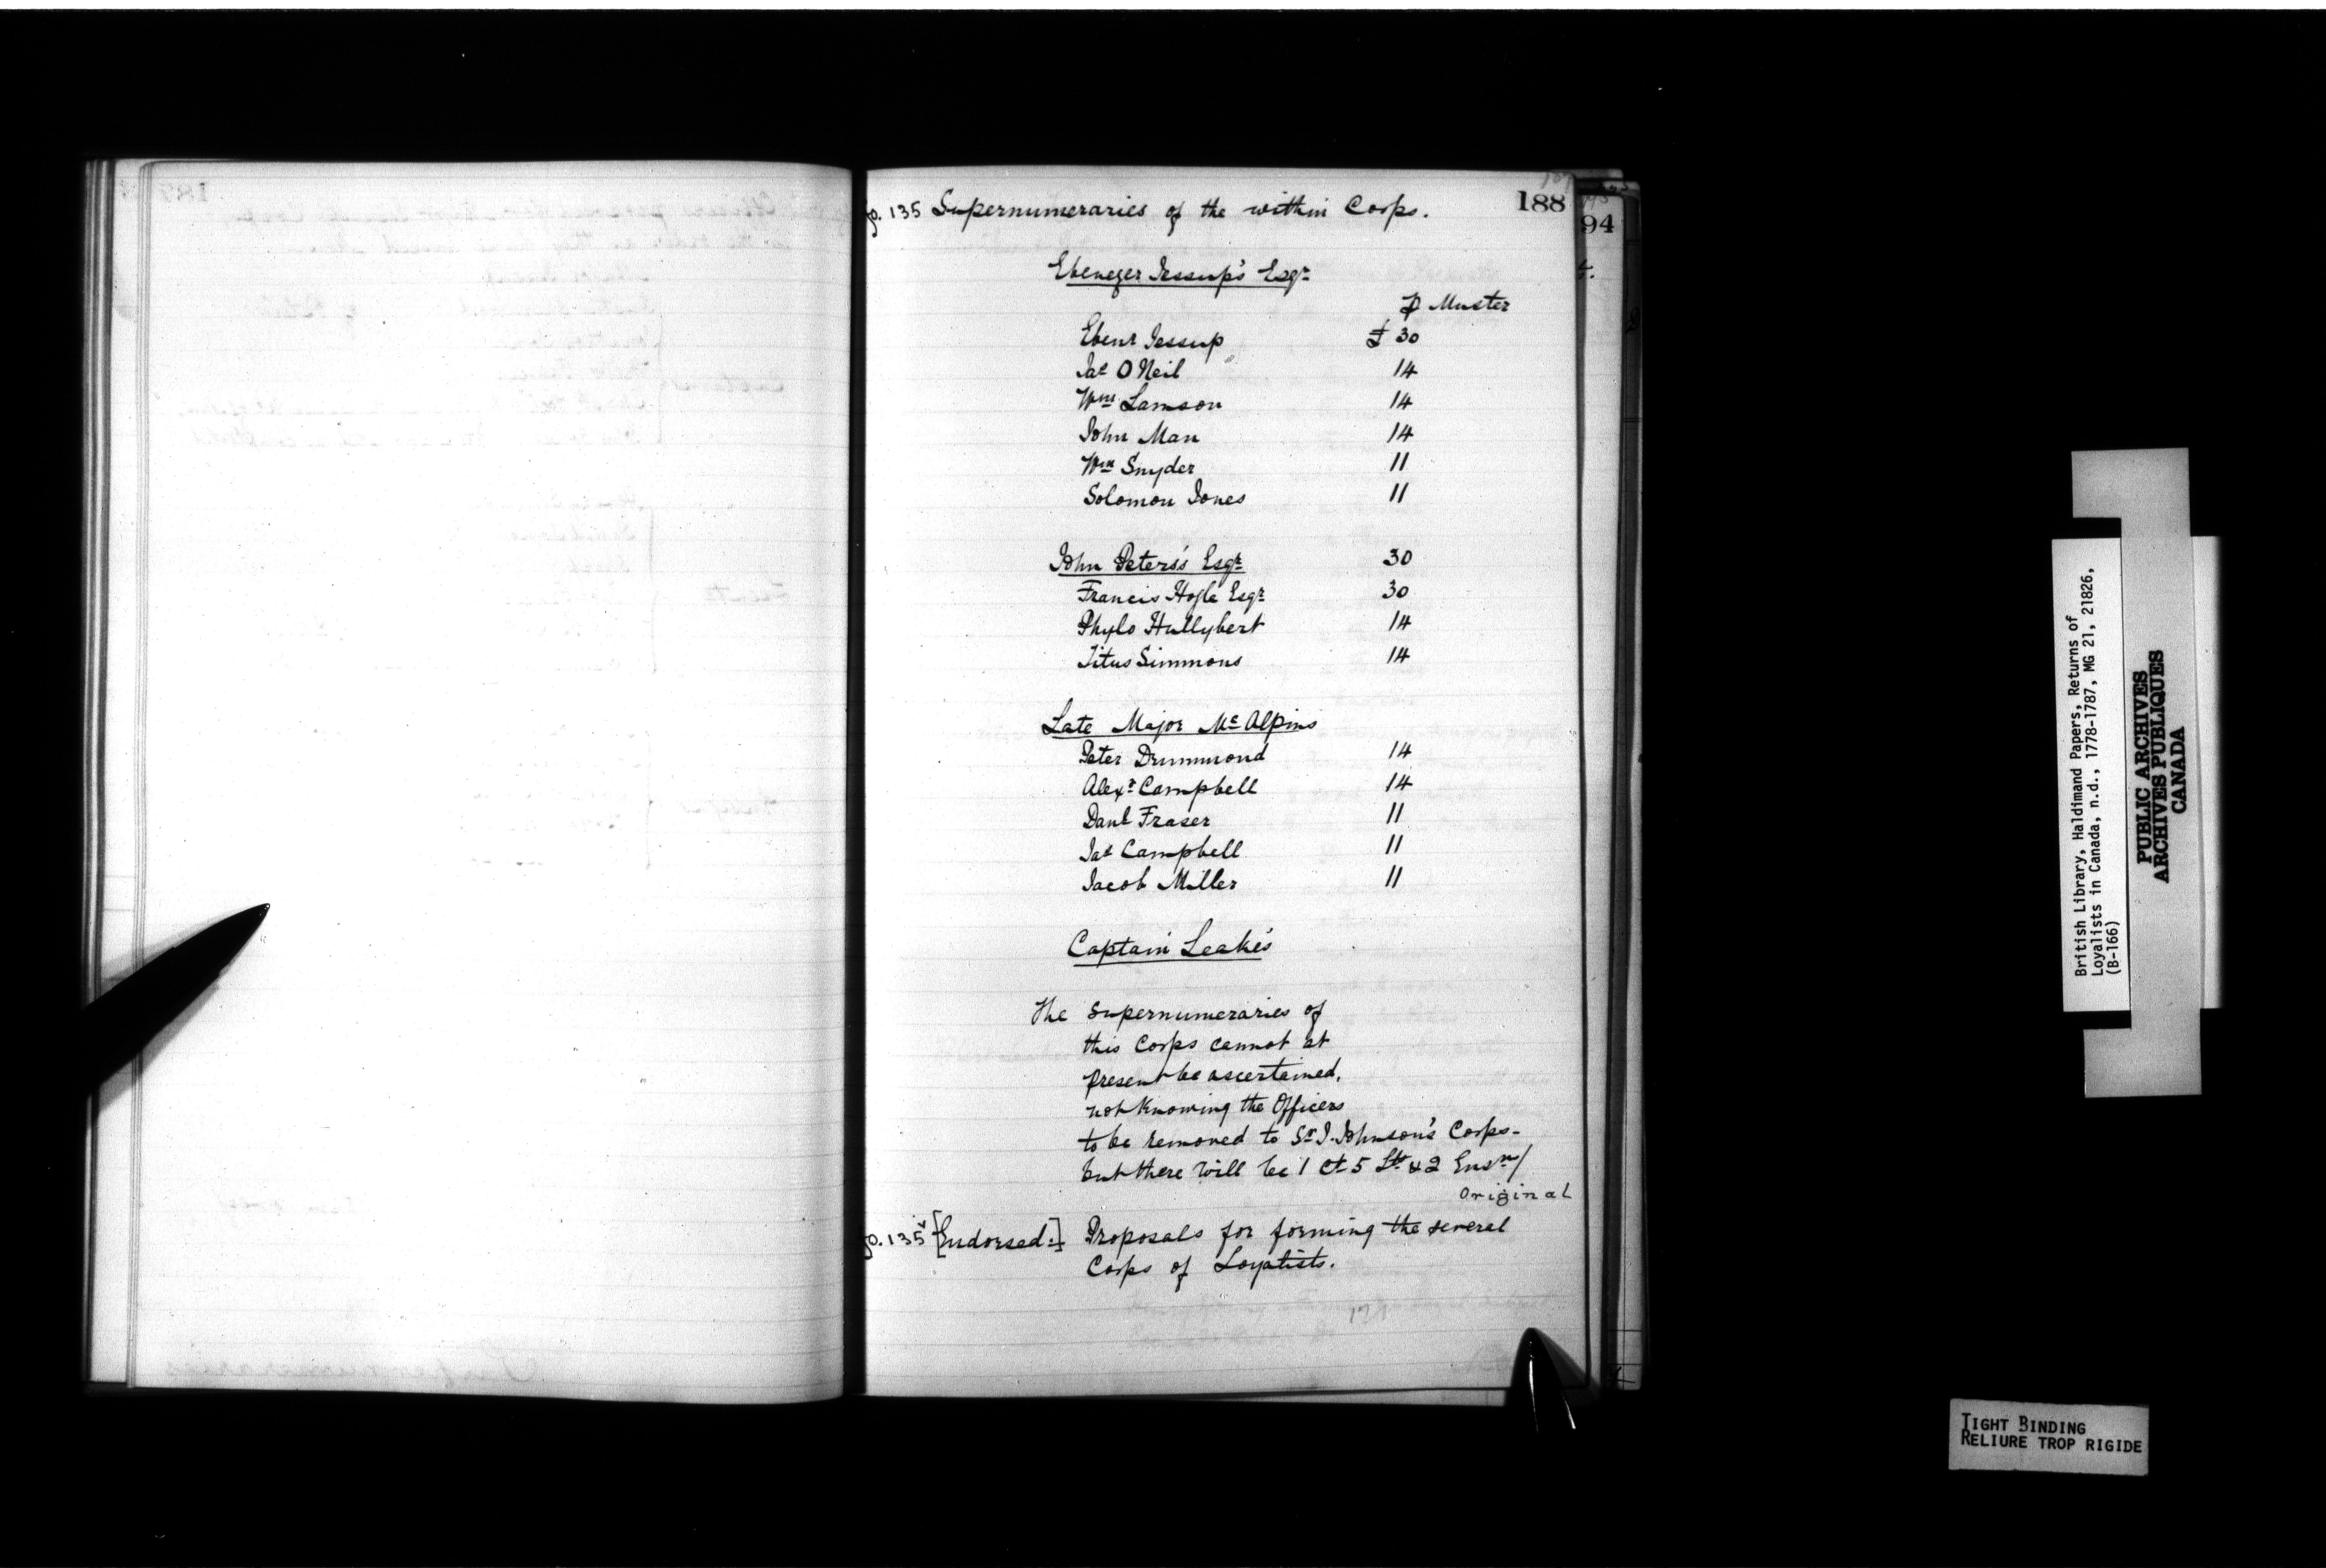 fo. 135 Supernumeraries of the within Corps.
188
94
Ebenezer Jessup's Esqr
⅌ Muster
Ebenr Jessup £ 30
Jas O Neil 14
Wm Lamson 14
John Man 14
Wm Snyder 11
Solomon Jones 11
John Peters's Esqr 30
Francis Hogle Esqr 30
Phylo Hullybert 14
Titus Simmons 14
Late Major Mc Alpins
Peter Drummond 14
Alexr Campbell 14
Danl Fraser 11
Jas Campbell 11
Jacob Miller 11
Captain Leake's
The supernumeraries of
this Corps cannot at
present be ascertained,
not knowing the Officers
to be removed to Sr J. Johnson's Corps-
but there will be 1 Ct 5 Lts & 2 Ensns/
Original
fo. 135v [Endorsed:] Proposals for forming the several
Corps of Loyalists.
171
British Library, Haldimand Papers, Returns of
Loyalists in Canada, n.d., 1778-1787, MG 21, 21826,
(B-166)
PUBLIC ARCHIVES
ARCHIVES PUBLIQUES
CANADA
TIGHT BINDING
RELIURE TROP RIGIDE